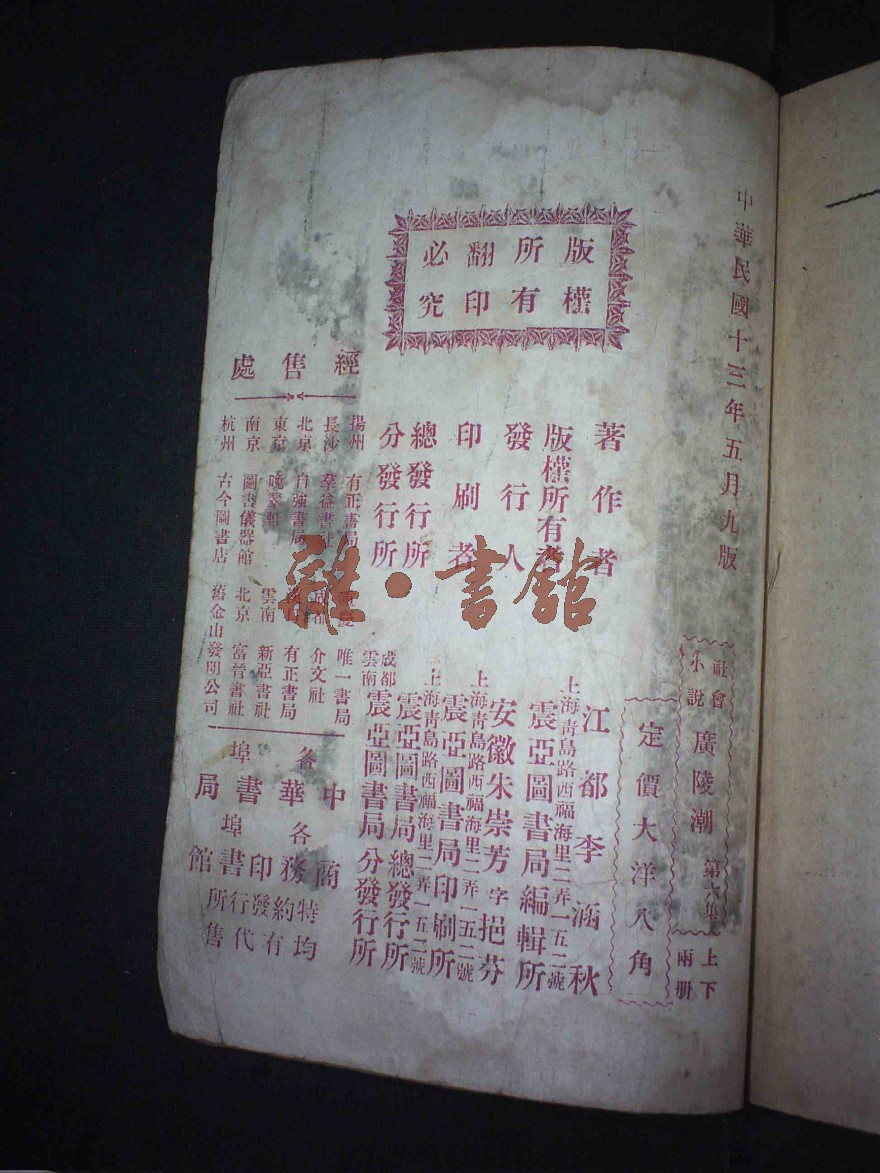 中華民國十三年五月九版
社會小說 廣陵潮 第六集 上下兩册
定價大洋八角
版權所有翻印必究
著作者 江都李涵秋
版權所有者 上海青島路西福海里二弄一五二號 震亞圖書局編輯所
發行人 安徽朱崇芳字挹芬
印刷者 上海青島路西福海里二弄一五二號 震亞圖書局印刷所
總發行所 上海青島路西福海里二弄一五二號 震亞圖書局總發行所
分發行所 成都雲南 震亞圖書局分發行所
經售處
揚州 有正書局 唯一書局
長沙 羣益書社 成都 介文社
北京 自強書局 有正書局
東京 晚翠軒 雲南 新亞書社
南京 圖書儀器館 北京 富晉書社
杭州 古今圖書店 舊金山發開公司
中華書局
商務印書館
各埠各埠特約發行所均有代售
雜·書館